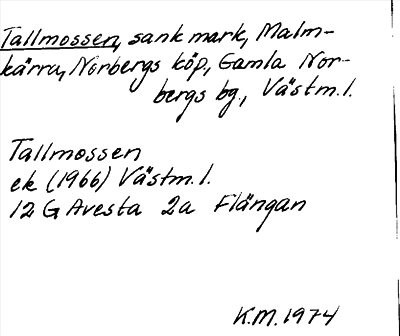 Tallmossen, sank mark, Malm-
kärra, Norbergs köp., Gamla Nor-
bergs bg., Västm.l.
Tallmossen
ek (1966) Västm.l.
12 G Avesta 2a Flängan
K.M. 1974